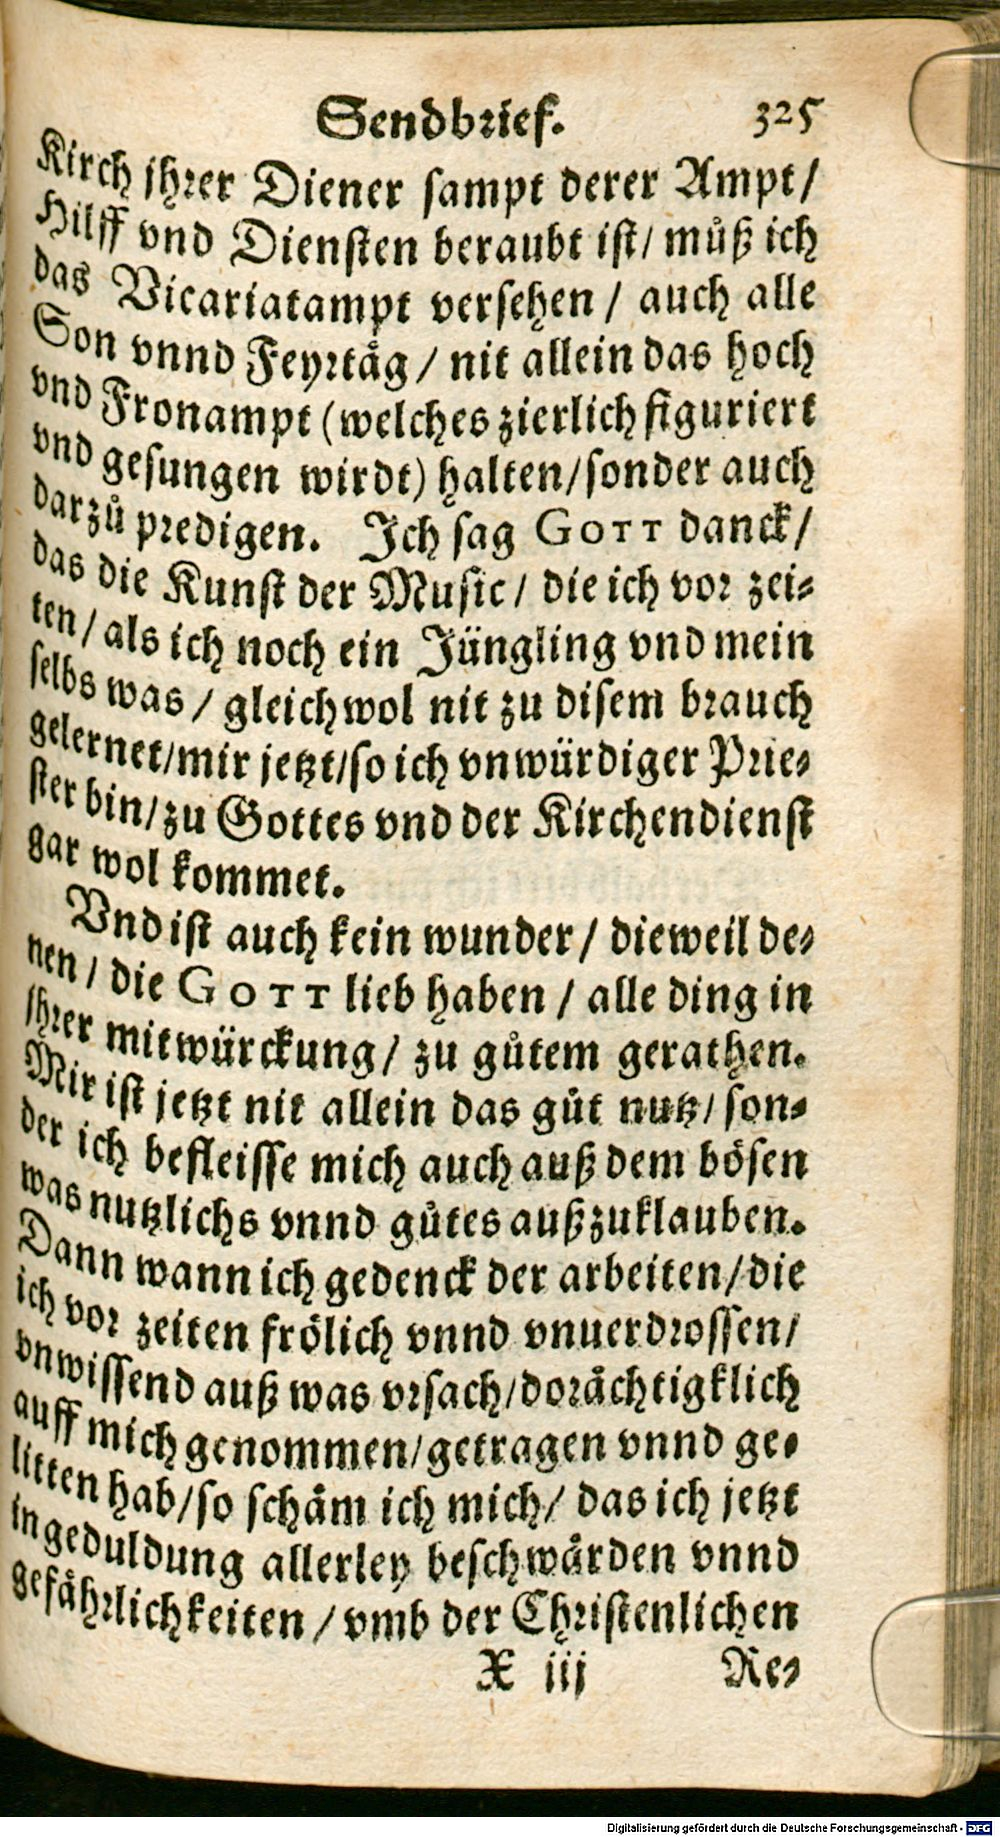 Sendbrief. 325
Kirch jhrer Diener sampt derer Ampt/
Hilff vnd Diensten beraubt ist/ muͦß ich
das Vicariatampt versehen / auch alle
Son vnnd Feyrtaͤg / nit allein das hoch
vnd Fronampt (welches zierlich figuriert
vnd gesungen wirdt) halten/sonder auch
darzuͦ predigen. Ich sag GOTT danck/
das die Kunst der Music / die ich vor zei⸗
ten / als ich noch ein Jüngling vnd mein
selbs was / gleichwol nit zu disem brauch
gelernet/mir jetzt/so ich vnwürdiger Prie⸗
ster bin/zu Gottes vnd der Kirchendienst
gar wol kommet.
Vnd ist auch kein wunder / dieweil de⸗
nen / die GOTT lieb haben / alle ding in
jhrer mitwürckung/ zu guͦtem gerathen.
Mir ist jetzt nit allein das guͦt nutz/ son⸗
der ich befleisse mich auch auß dem boͤsen
was nutzlichs vnnd guͦtes außzuklauben.
Dann wann ich gedenck der arbeiten/die
ich vor zeiten froͤlich vnnd vnuerdrossen/
vnwissend auß was vrsach/doraͤchtigklich
auff mich genommen/getragen vnnd ge⸗
litten hab/so schaͤm ich mich/ das ich jetzt
in geduldung allerley beschwaͤrden vnnd
gefaͤhrlichkeiten / vmb der Christenlichen
X iij Re⸗
Digitalisierung gefördert durch die Deutsche Forschungsgemeinschaft - DFG